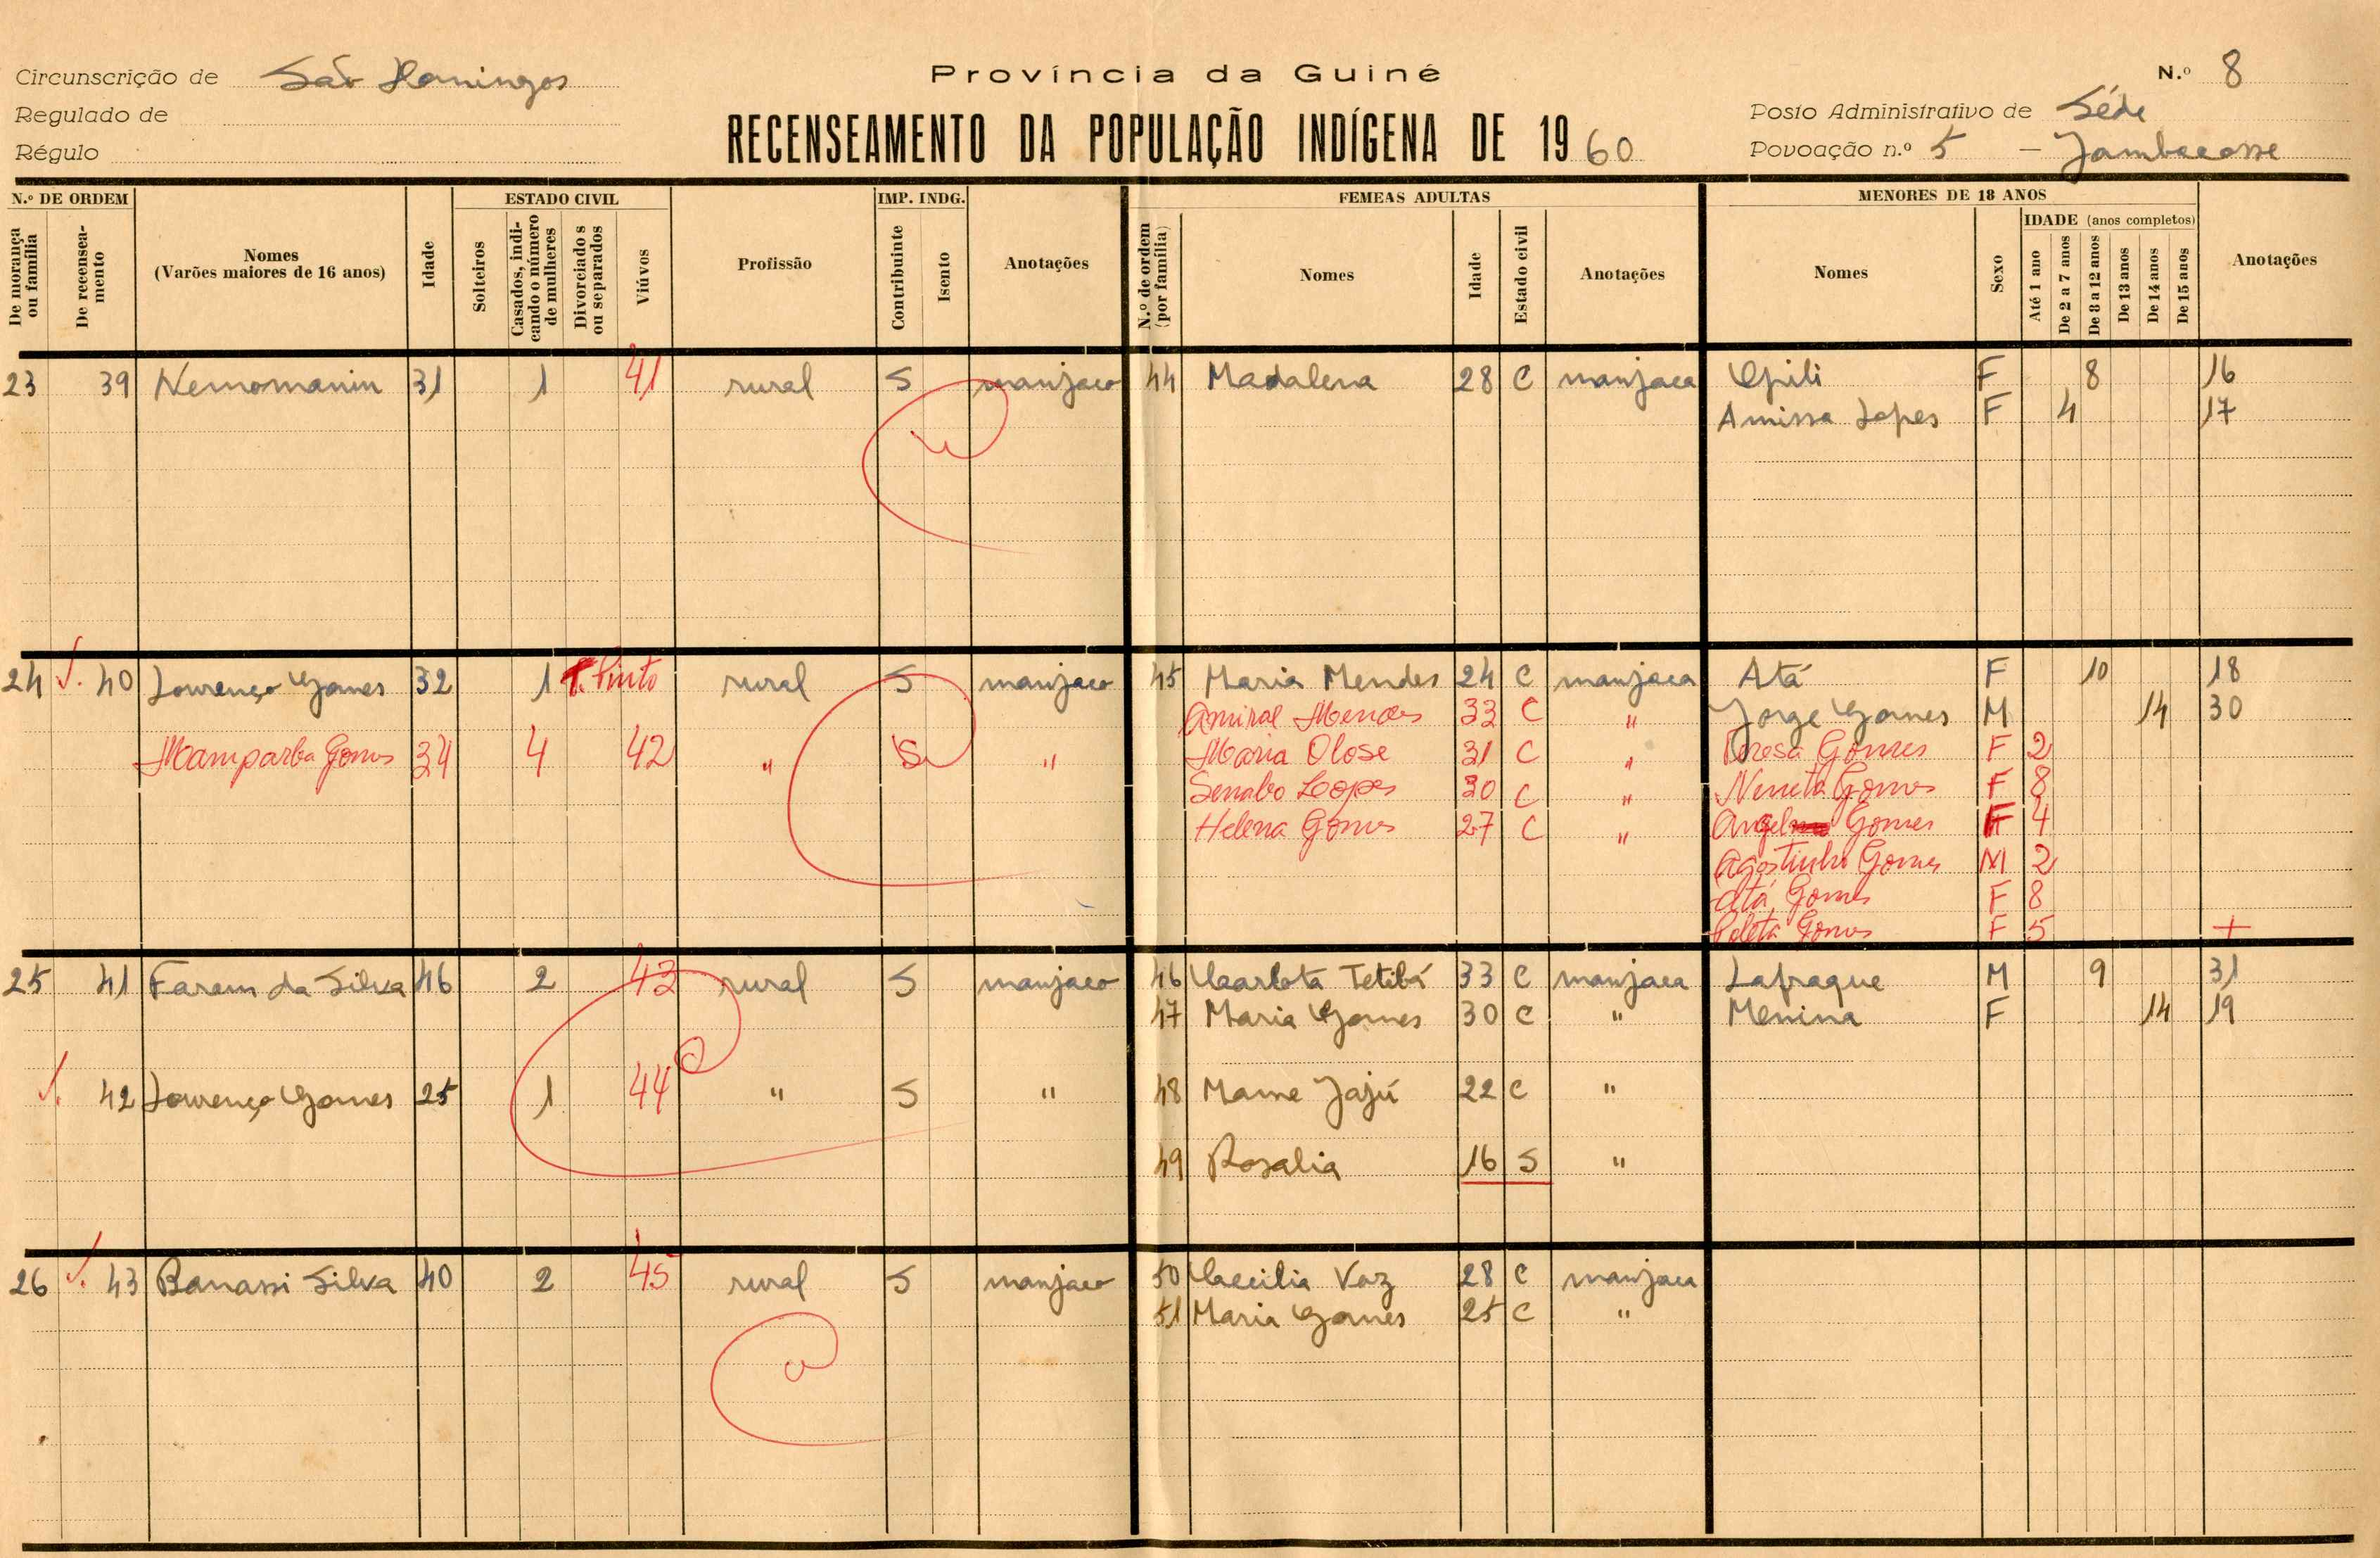 Circunscrição de São Domingos
Província da Guiné
N.º 8
Regulado de
RECENSEAMENTO DA POPULAÇÃO INDÍGENA DE 1960
Posto Administrativo de Séde
Régulo
Povoação n.º 5 –
N.º DE ORDEM
ESTADO CIVIL
IMP. INDG.
FEMEAS ADULTAS
MENORES DE 18 ANOS
IDADE (anos completos)
De morança ou família
De recensea-mento
Nomes
(Varões maiores de 16 anos)
Idade
Solteiros
Casados, indi-cando o número de mulheres
Divorciados ou separados
Viúvos
Profissão
Contribuinte
Isento
Anotações
N.º de ordem (por família)
Nomes
Idade
Estado civil
Anotações
Nomes
Sexo
Até 1 ano
De 2 a 7 anos
De 8 a 12 anos
De 13 anos
De 14 anos
De 15 anos
Anotações
23 39 Nemomanim 31 1 41 rural S manjaco 44 Madalena 28 C manjaca F 8 16
Amissa Lopes F 4 17
24 40 Lourenço Gomes 32 1 Pinto rural S manjaco 45 Maria Mendes 24 C manjaca Atá F 10 18
Amiral Mendes 33 C " Jorge Gomes M 14 30
Mamparba Gomes 34 4 42 " S " Maria Olose 31 C " Teresa Gomes F 2
Senabo Lopes 30 C " Gomes F 8
Helena Gomes 27 C " Gomes F 4
Agostinho Gomes M 2
Atá Gomes F 8
Gomes F 5 +
25 41 Faram da Silva 46 2 43 rural S manjaco 46 Carlota Tetibá 33 C manjaca Lafraque M 9 31
47 Maria Gomes 30 C " Menina F 14 19
42 Lourenço Gomes 25 1 44 " S " 48 Mame Jajú 22 C "
49 Rosalia 16 S "
26 43 Banassi Silva 40 2 45 rural S manjaco 50 Caecilia Vaz 28 C manjaca
51 Maria Gomes 25 C "